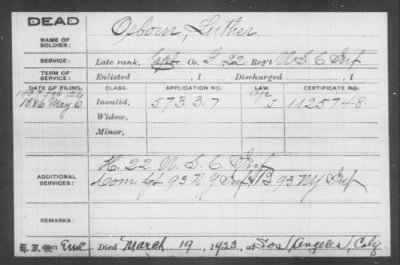 DEAD
NAME OF SOLDIER: Osborn, Luther
SERVICE: Late rank, Capt Co. F 22 Reg't U S C Inf
TERM OF SERVICE: Enlisted , 1 Discharged , 1
DATE OF FILING. CLASS. APPLICATION NO. LAW. CERTIFICATE NO.
1886 May 6 Invalid, 573.317 J 1125748.
Widow,
Minor,
ADDITIONAL SERVICES: H. 22 U. S. C Inf
Com Sgt 93 N Y Inf & B 93 N Y Inf
REMARKS:
Died March 19, 1923, at Los Angeles, Caly